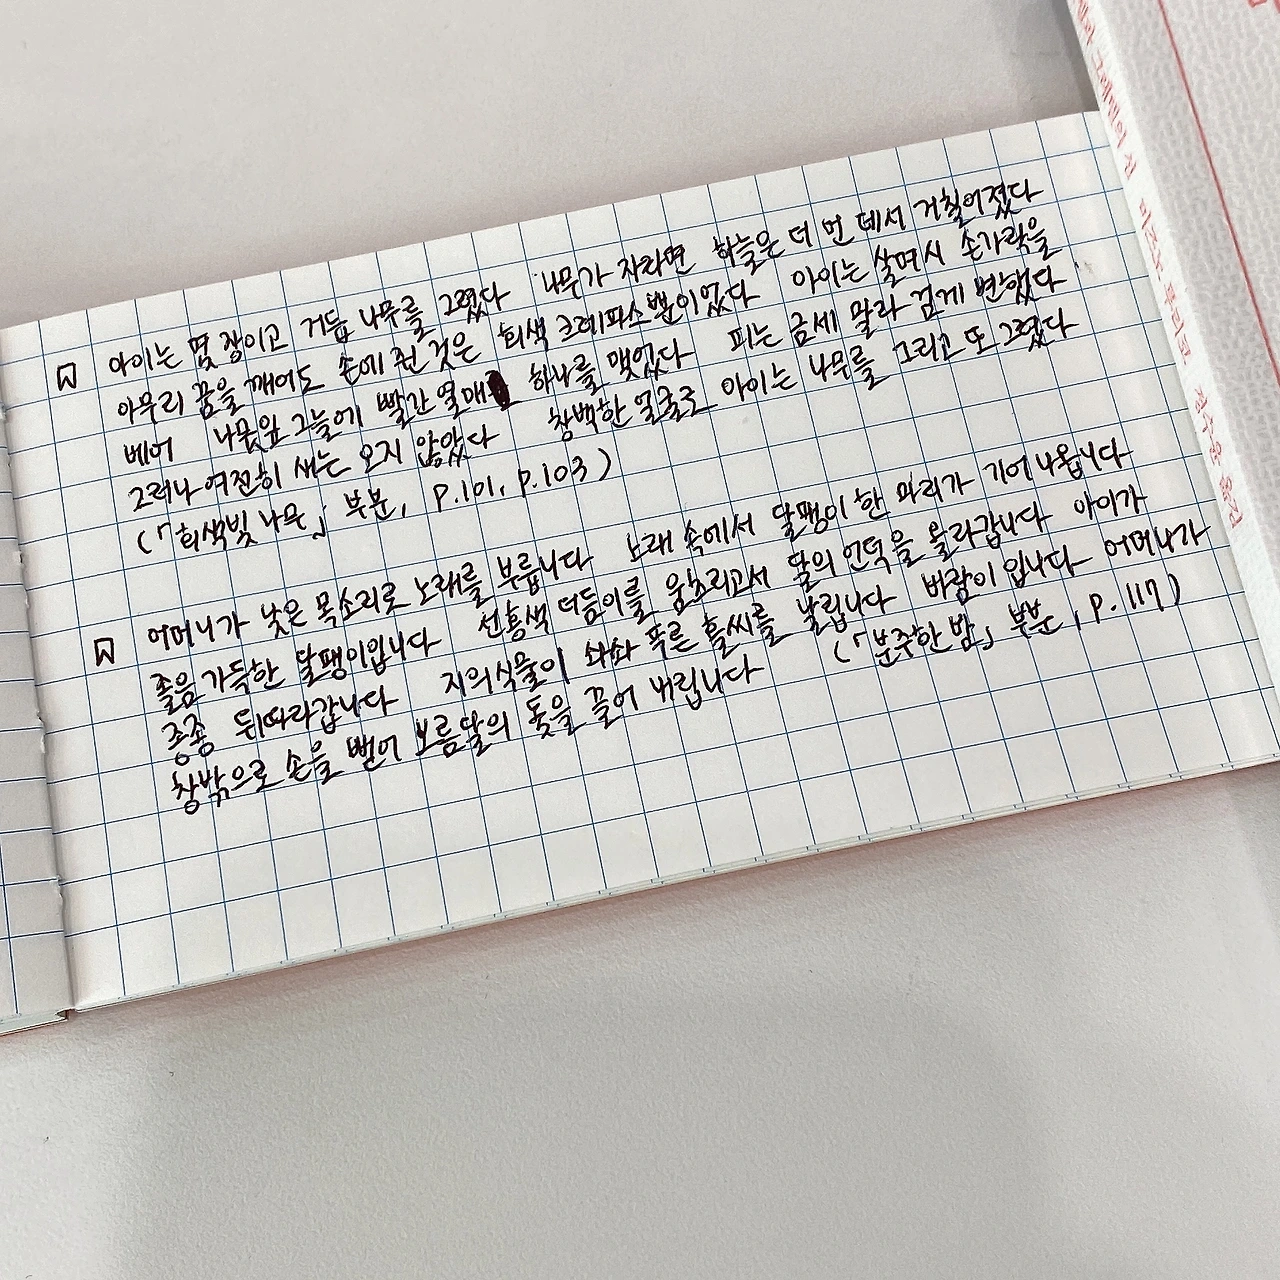 아이는 몇 장이고 거듭 나무를 그렸다 나무가 자라면 하늘은 더 먼 데서 거칠어졌다
아무리 꿈을 깨어도 손에 쥔 것은 회색 크레파스뿐이었다 아이는 살며시 손가락을
베어 나뭇잎 그늘에 빨간 열매 하나를 맺었다 피는 금세 말라 검게 변했다
그러나 여전히 새는 오지 않았다 창백한 얼굴로 아이는 나무를 그리고 또 그렸다
(「회색빛 나무」 부분, p.101, p.103)
어머니가 낮은 목소리로 노래를 부릅니다 노래 속에서 달팽이 한 마리가 기어 나옵니다
졸음 가득한 달팽이입니다 선홍색 더듬이를 움츠리고서 달의 언덕을 올라갑니다 아이가
종종 뒤따라갑니다 지의식물이 솨솨 푸른 홀씨를 날립니다 바람이 입니다 어머니가
창밖으로 손을 뻗어 보름달의 돛을 끌어 내립니다 (「분주한 밤」 부분, p.117)